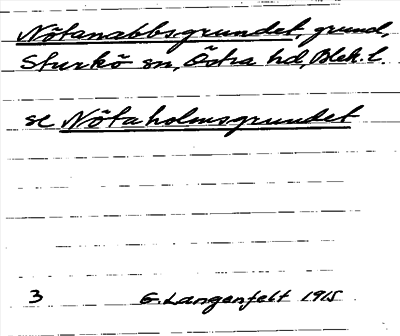 Nötanabbsgrundet, grund,
Sturkö sn, Östra hd, Blek. l.
se Nötaholmsgrundet
3 G. Langenfelt 1915